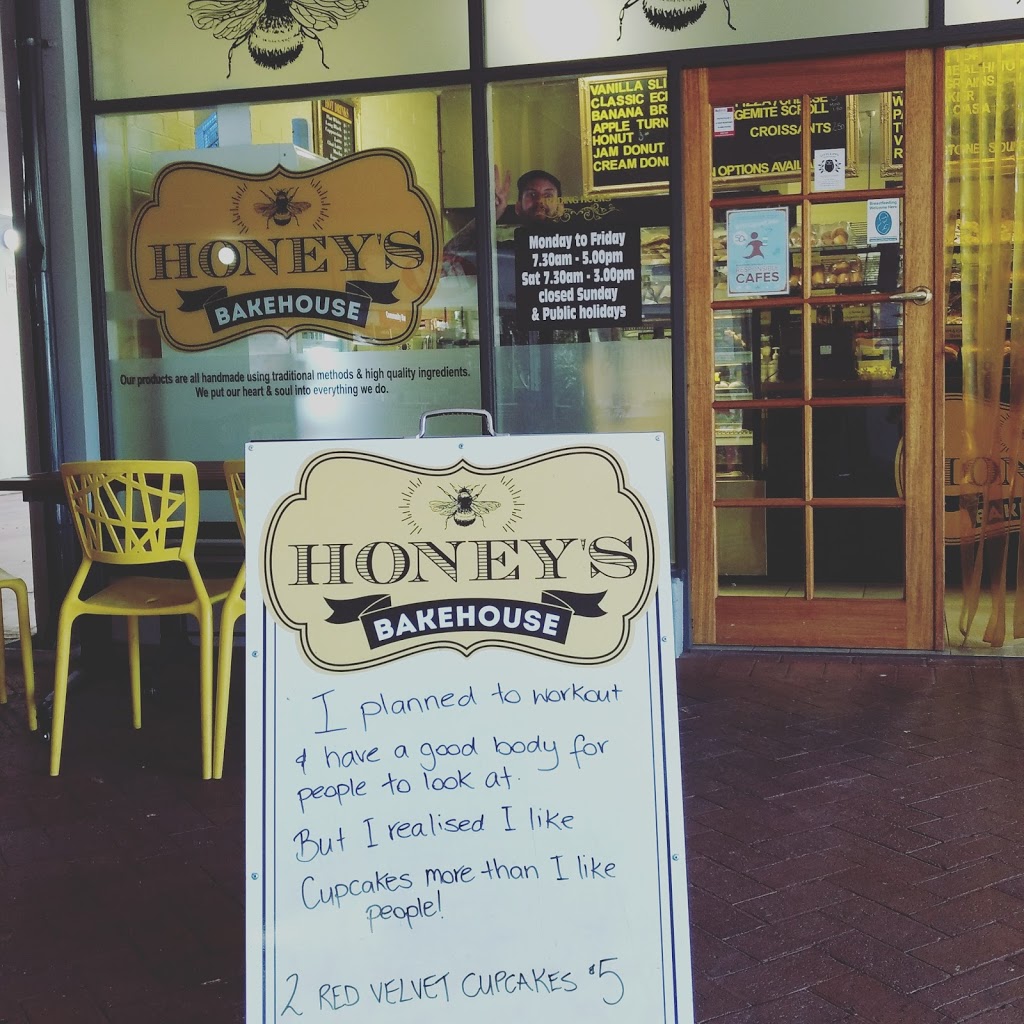 HONEY'S
BAKEHOUSE
Our products are all handmade using traditional methods & high quality ingredients.
We put our heart & soul into everything we do.
Monday to Friday
7.30am - 5.00pm
Sat 7.30am - 3.00pm
closed Sunday
& Public holidays
VANILLA SLI
CLASSIC ECL
BANANA BR
APPLE TURN
HONUT
JAM DONUT
CREAM DONU
GEMITE SCROLL
CROISSANTS
OPTIONS AVAILA
CAFES
HONEY'S
BAKEHOUSE
I planned to workout
& have a good body for
people to look at.
But I realised I like
Cupcakes more than I like
people!
2 RED VELVET CUPCAKES $5